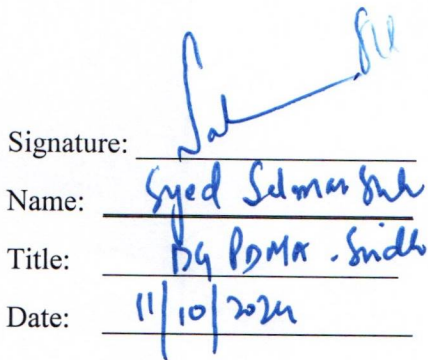 Signature:
Name: Syed Salman Shah
Title: DG PDMA . Sindh
Date: 11/10/2024